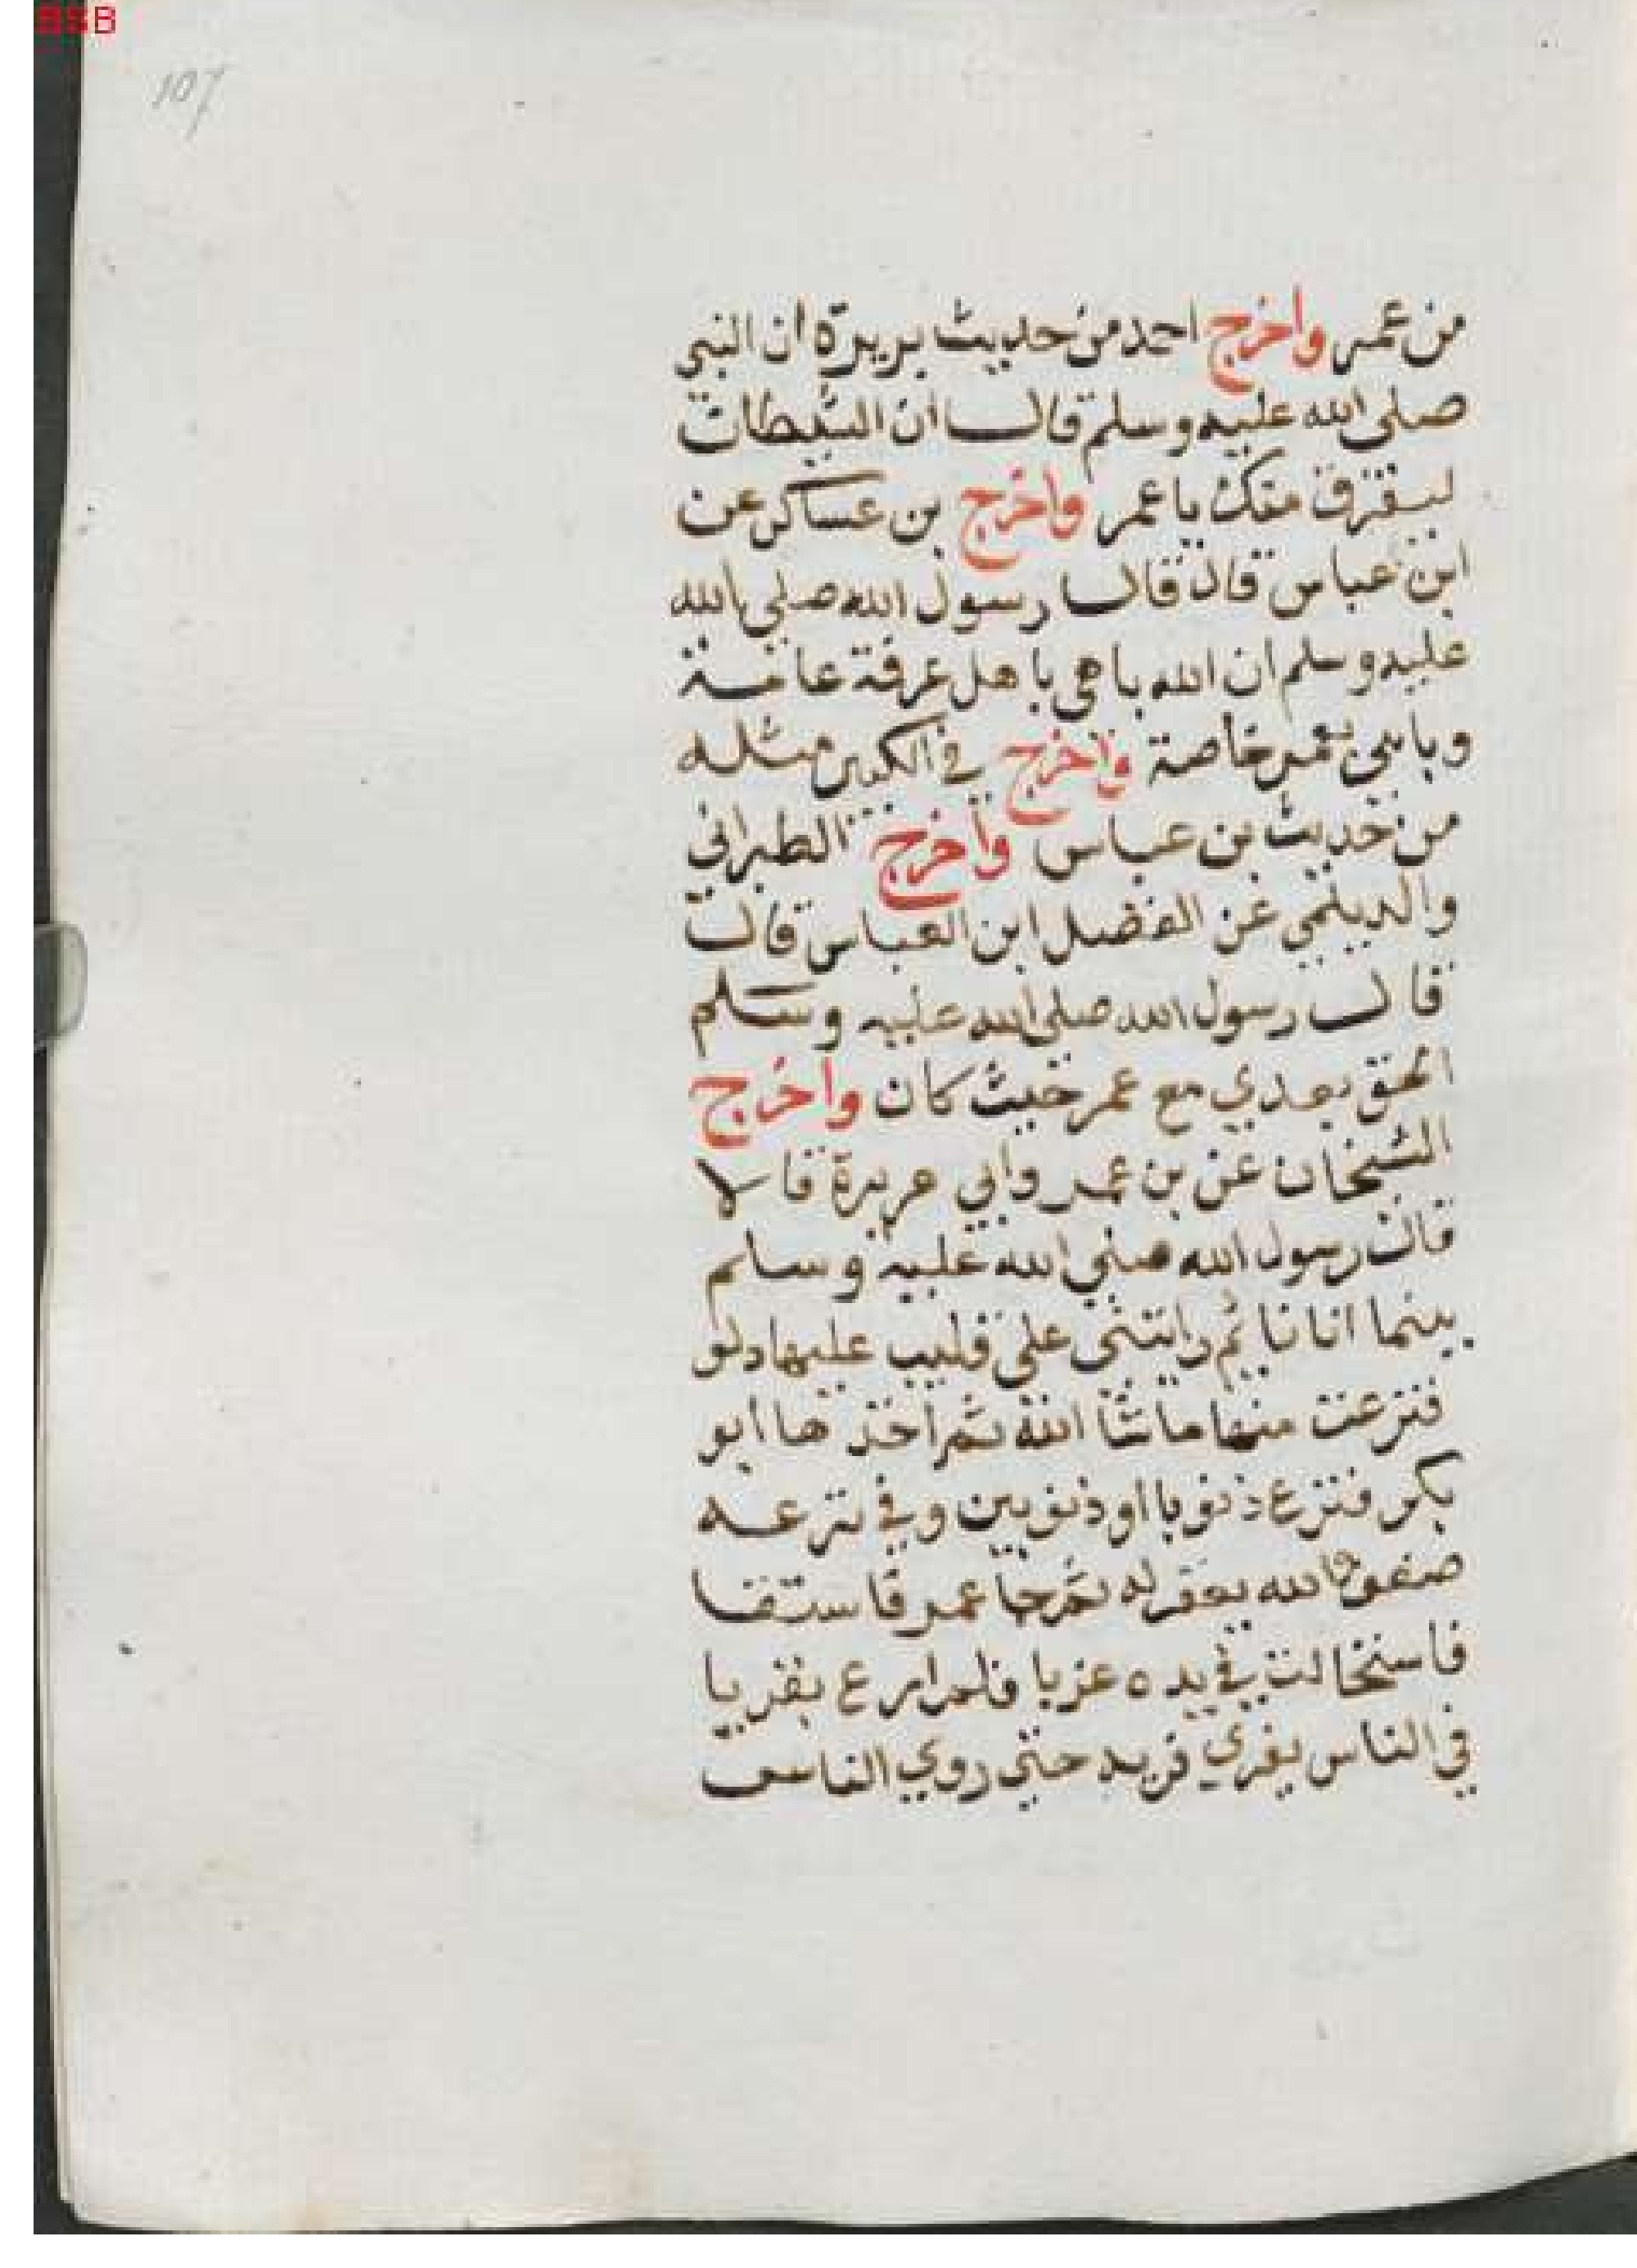 BSB
107
من عمر واخرج احمد من حديث بريرة ان النبي
صلى الله عليه وسلم قال ان الشيطان
ليفرق منك يا عمر واخرج بن عساكر عن
ابن عباس قال قال رسول الله صلي الله
عليه وسلم ان الله باهي باهل عرفة عامة
وباهي بعمر خاصة واخرج في الكبير مثله
من حديث بن عباس واخرج الطبراني
والديلمي عن الفضل ابن العباس قال
قال رسول الله صلى الله عليه وسلم
الحق بعدي مع عمر حيث كان واخرج
الشيخان عن بن عمر وابي هريرة قالا
قال رسول الله صلي الله عليه وسلم
بينما انا نايم رايتني على قليب عليها دلو
فنزعت منها ما شا الله ثم اخذ ها ابو
بكر فنزع ذنوبا او ذنوبين وفي نزعه
ضعف والله يغفر له ثم جا عمر فاستقا
فاستحالت في يده غربا فلم ار ع بقريا
في الناس يفري فريه حتي روي الناس